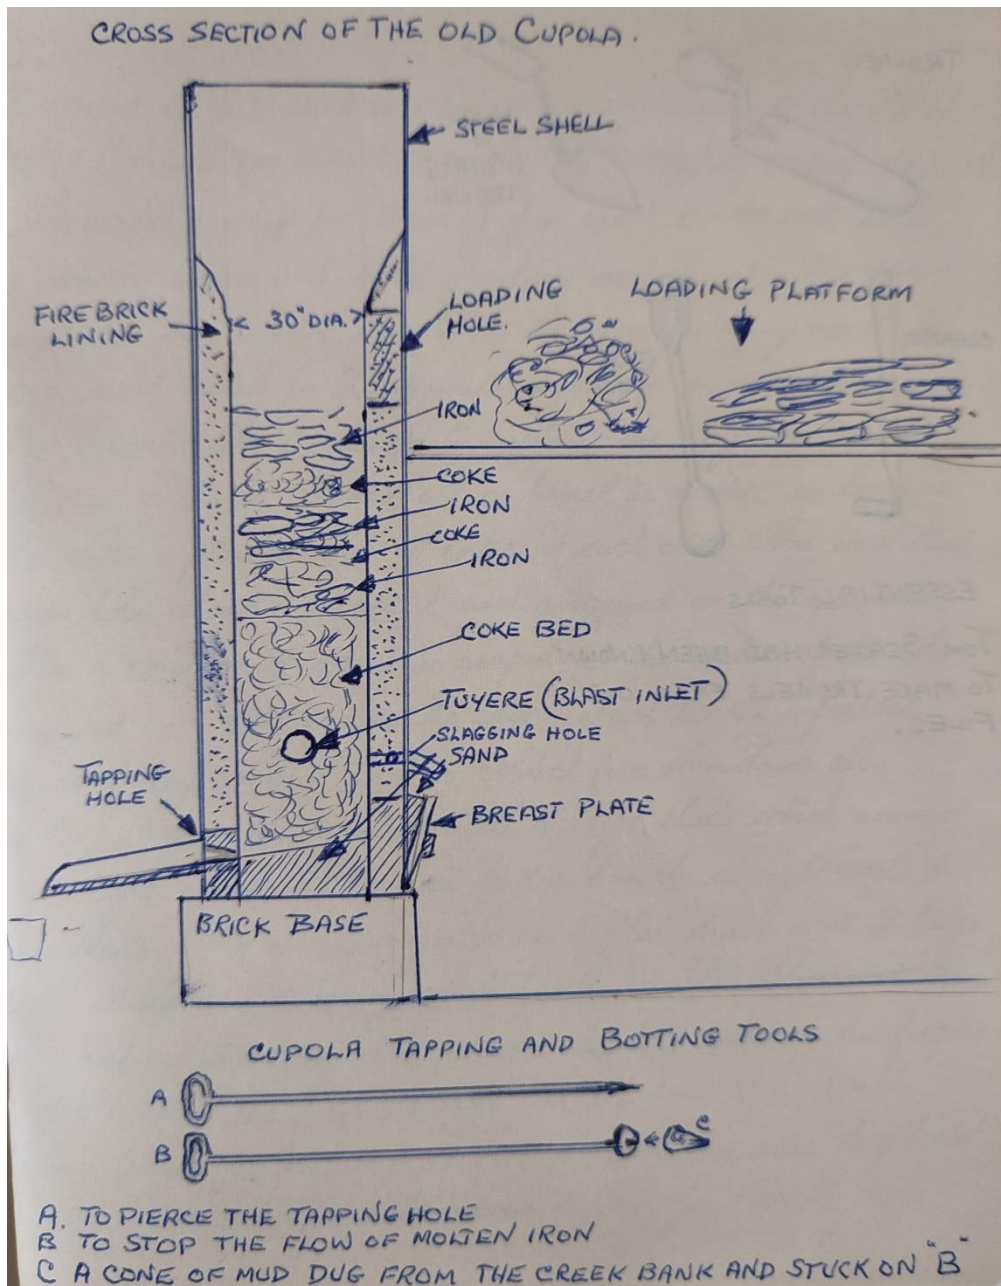 CROSS SECTION OF THE OLD CUPOLA.
STEEL SHELL
FIREBRICK
LINING
< 30" DIA. >
LOADING
HOLE.
LOADING PLATFORM
IRON
COKE
IRON
COKE
IRON
COKE BED
TUYERE (BLAST INLET)
SLAGGING HOLE
SAND
TAPPING
HOLE
BREAST PLATE
BRICK BASE
CUPOLA TAPPING AND BOTTING TOOLS
A
B
C
A. TO PIERCE THE TAPPING HOLE
B TO STOP THE FLOW OF MOLTEN IRON
C A CONE OF MUD DUG FROM THE CREEK BANK AND STUCK ON "B"